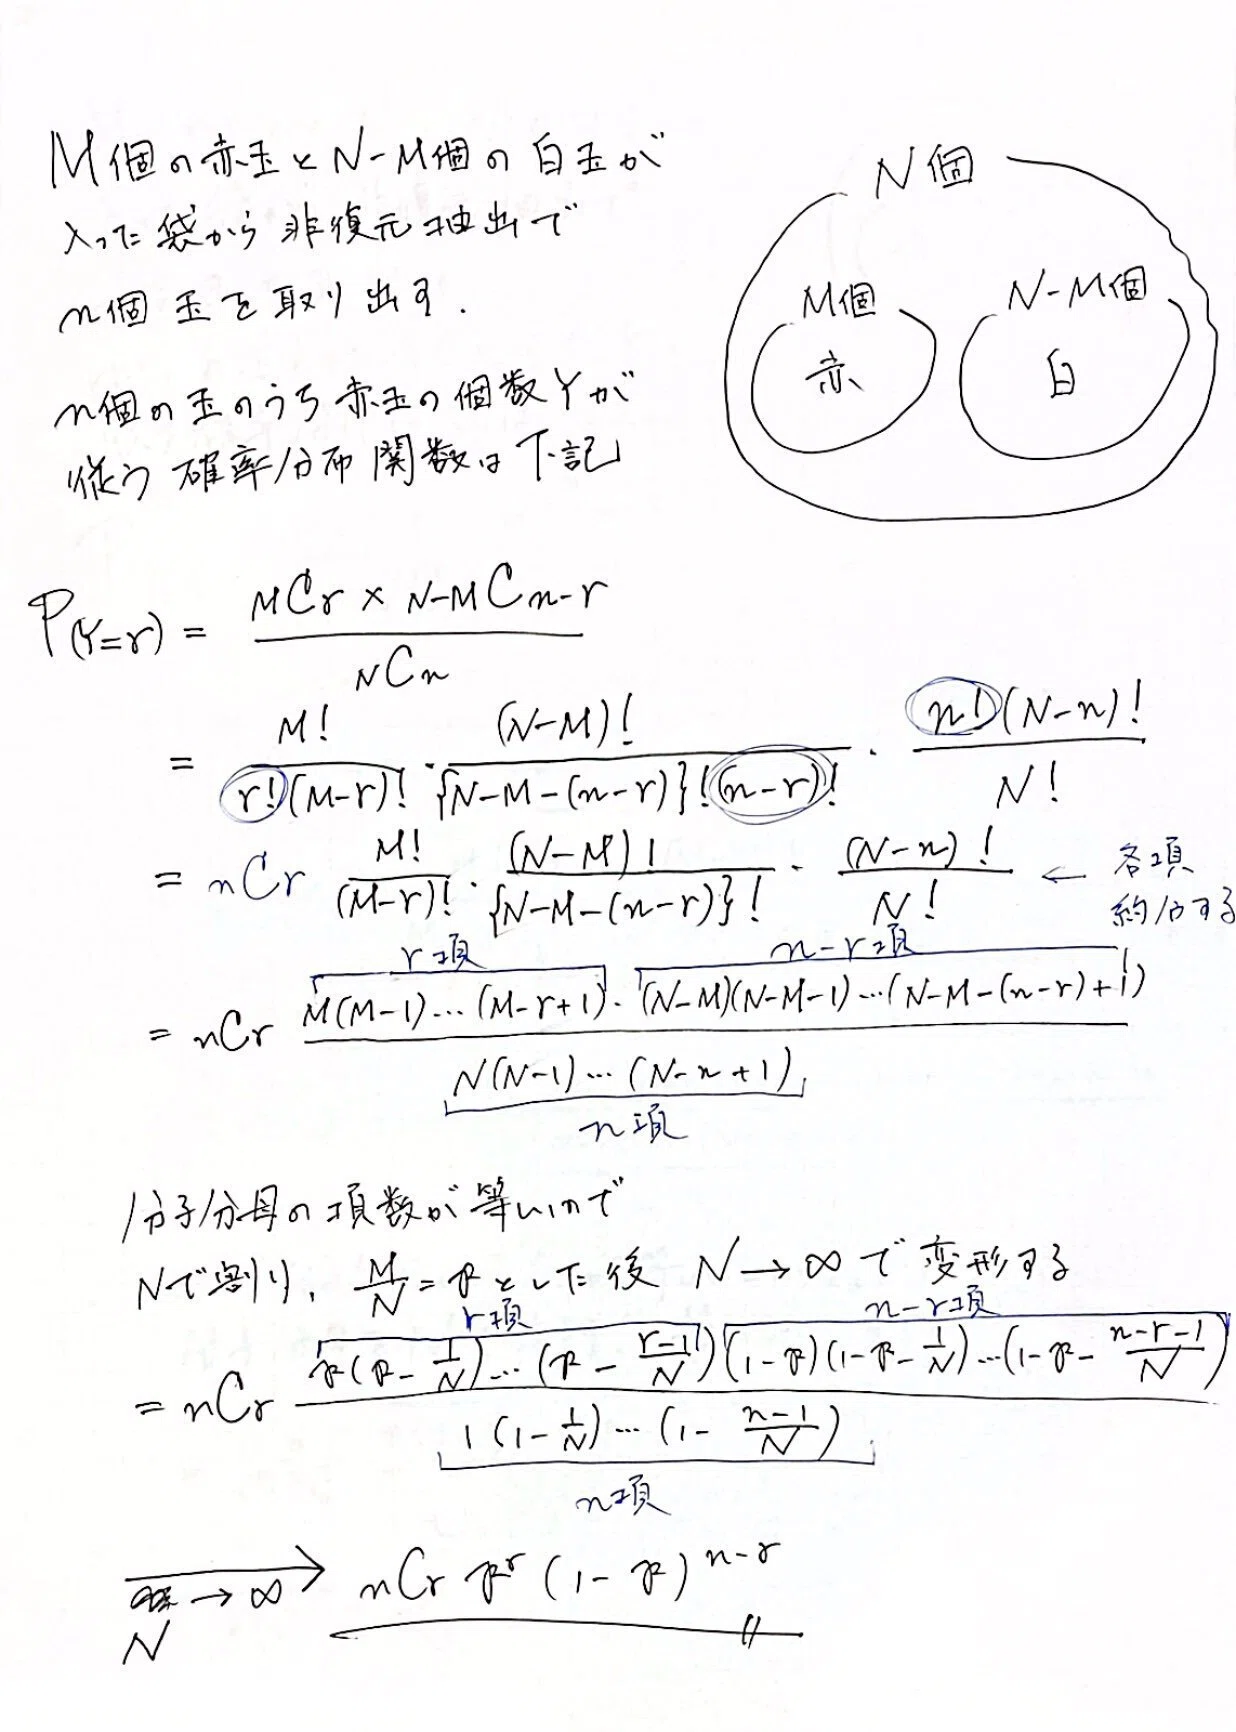 M個の赤玉とN-M個の白玉が
入った袋から非復元抽出で
n個玉を取り出す.
n個の玉のうち赤玉の個数Yが
従う確率分布関数は下記
N個
M個
N-M個
赤
白
P(Y=r) = MCr × N-MCn-r / NCn
= M! / r!(M-r)! · (N-M)! / {N-M-(n-r)}!(n-r)! · n!(N-n)! / N!
= nCr M! / (M-r)! · (N-M)! / {N-M-(n-r)}! · (N-n)! / N! ← 各項
約分する
r項 n-r項
= nCr M(M-1)…(M-r+1)·(N-M)(N-M-1)…(N-M-(n-r)+1) / N(N-1)…(N-n+1)
n項
分子分母の項数が等しいので
Nで割り, M/N = pとした後 N→∞で変形する
r項 n-r項
= nCr p(p-1/N)…(p-r-1/N)(1-p)(1-p-1/N)…(1-p-n-r-1/N) / 1(1-1/N)…(1-n-1/N)
n項
→ nCr p^r (1-p)^n-r
→∞
N